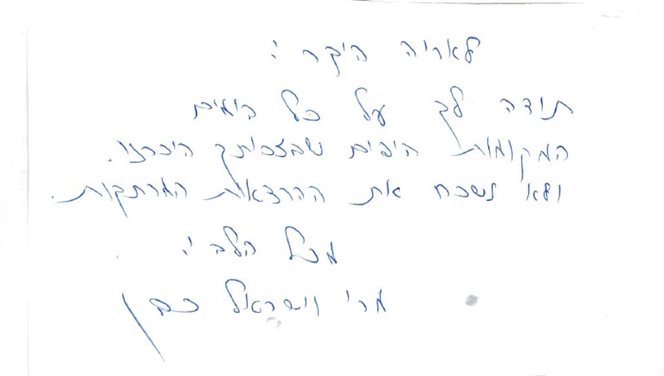 לאריה היקר !
תודה לך על כל הימים
המקומות היפים שבזכותך היכרנו.
ולא נשכח את ההרצאות המרתקות.
מכל הלב !
מרי וישראל כהן